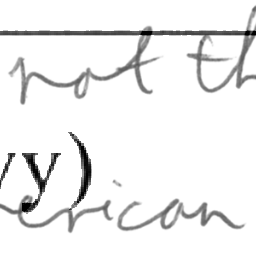 not th
yy)
erican